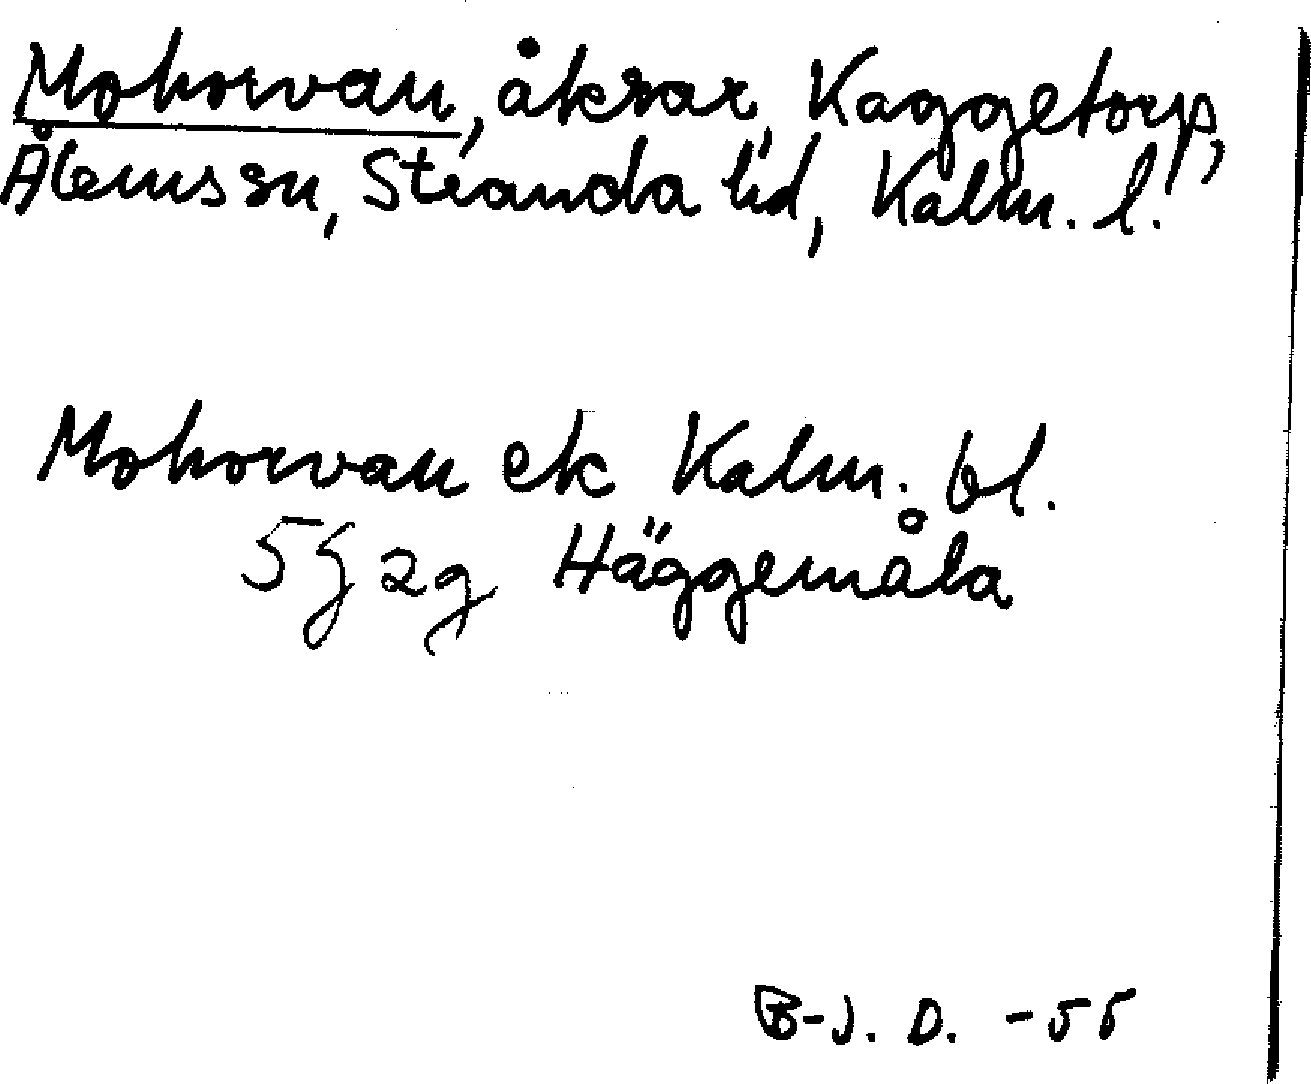 Mohorvan, åkrar, Kaggetorp,
Ålems sn, Stranda hd, Kalm. l.
Mohorvan ek Kalm. bl.
5g 2g Häggemåla
B-J. D. -55